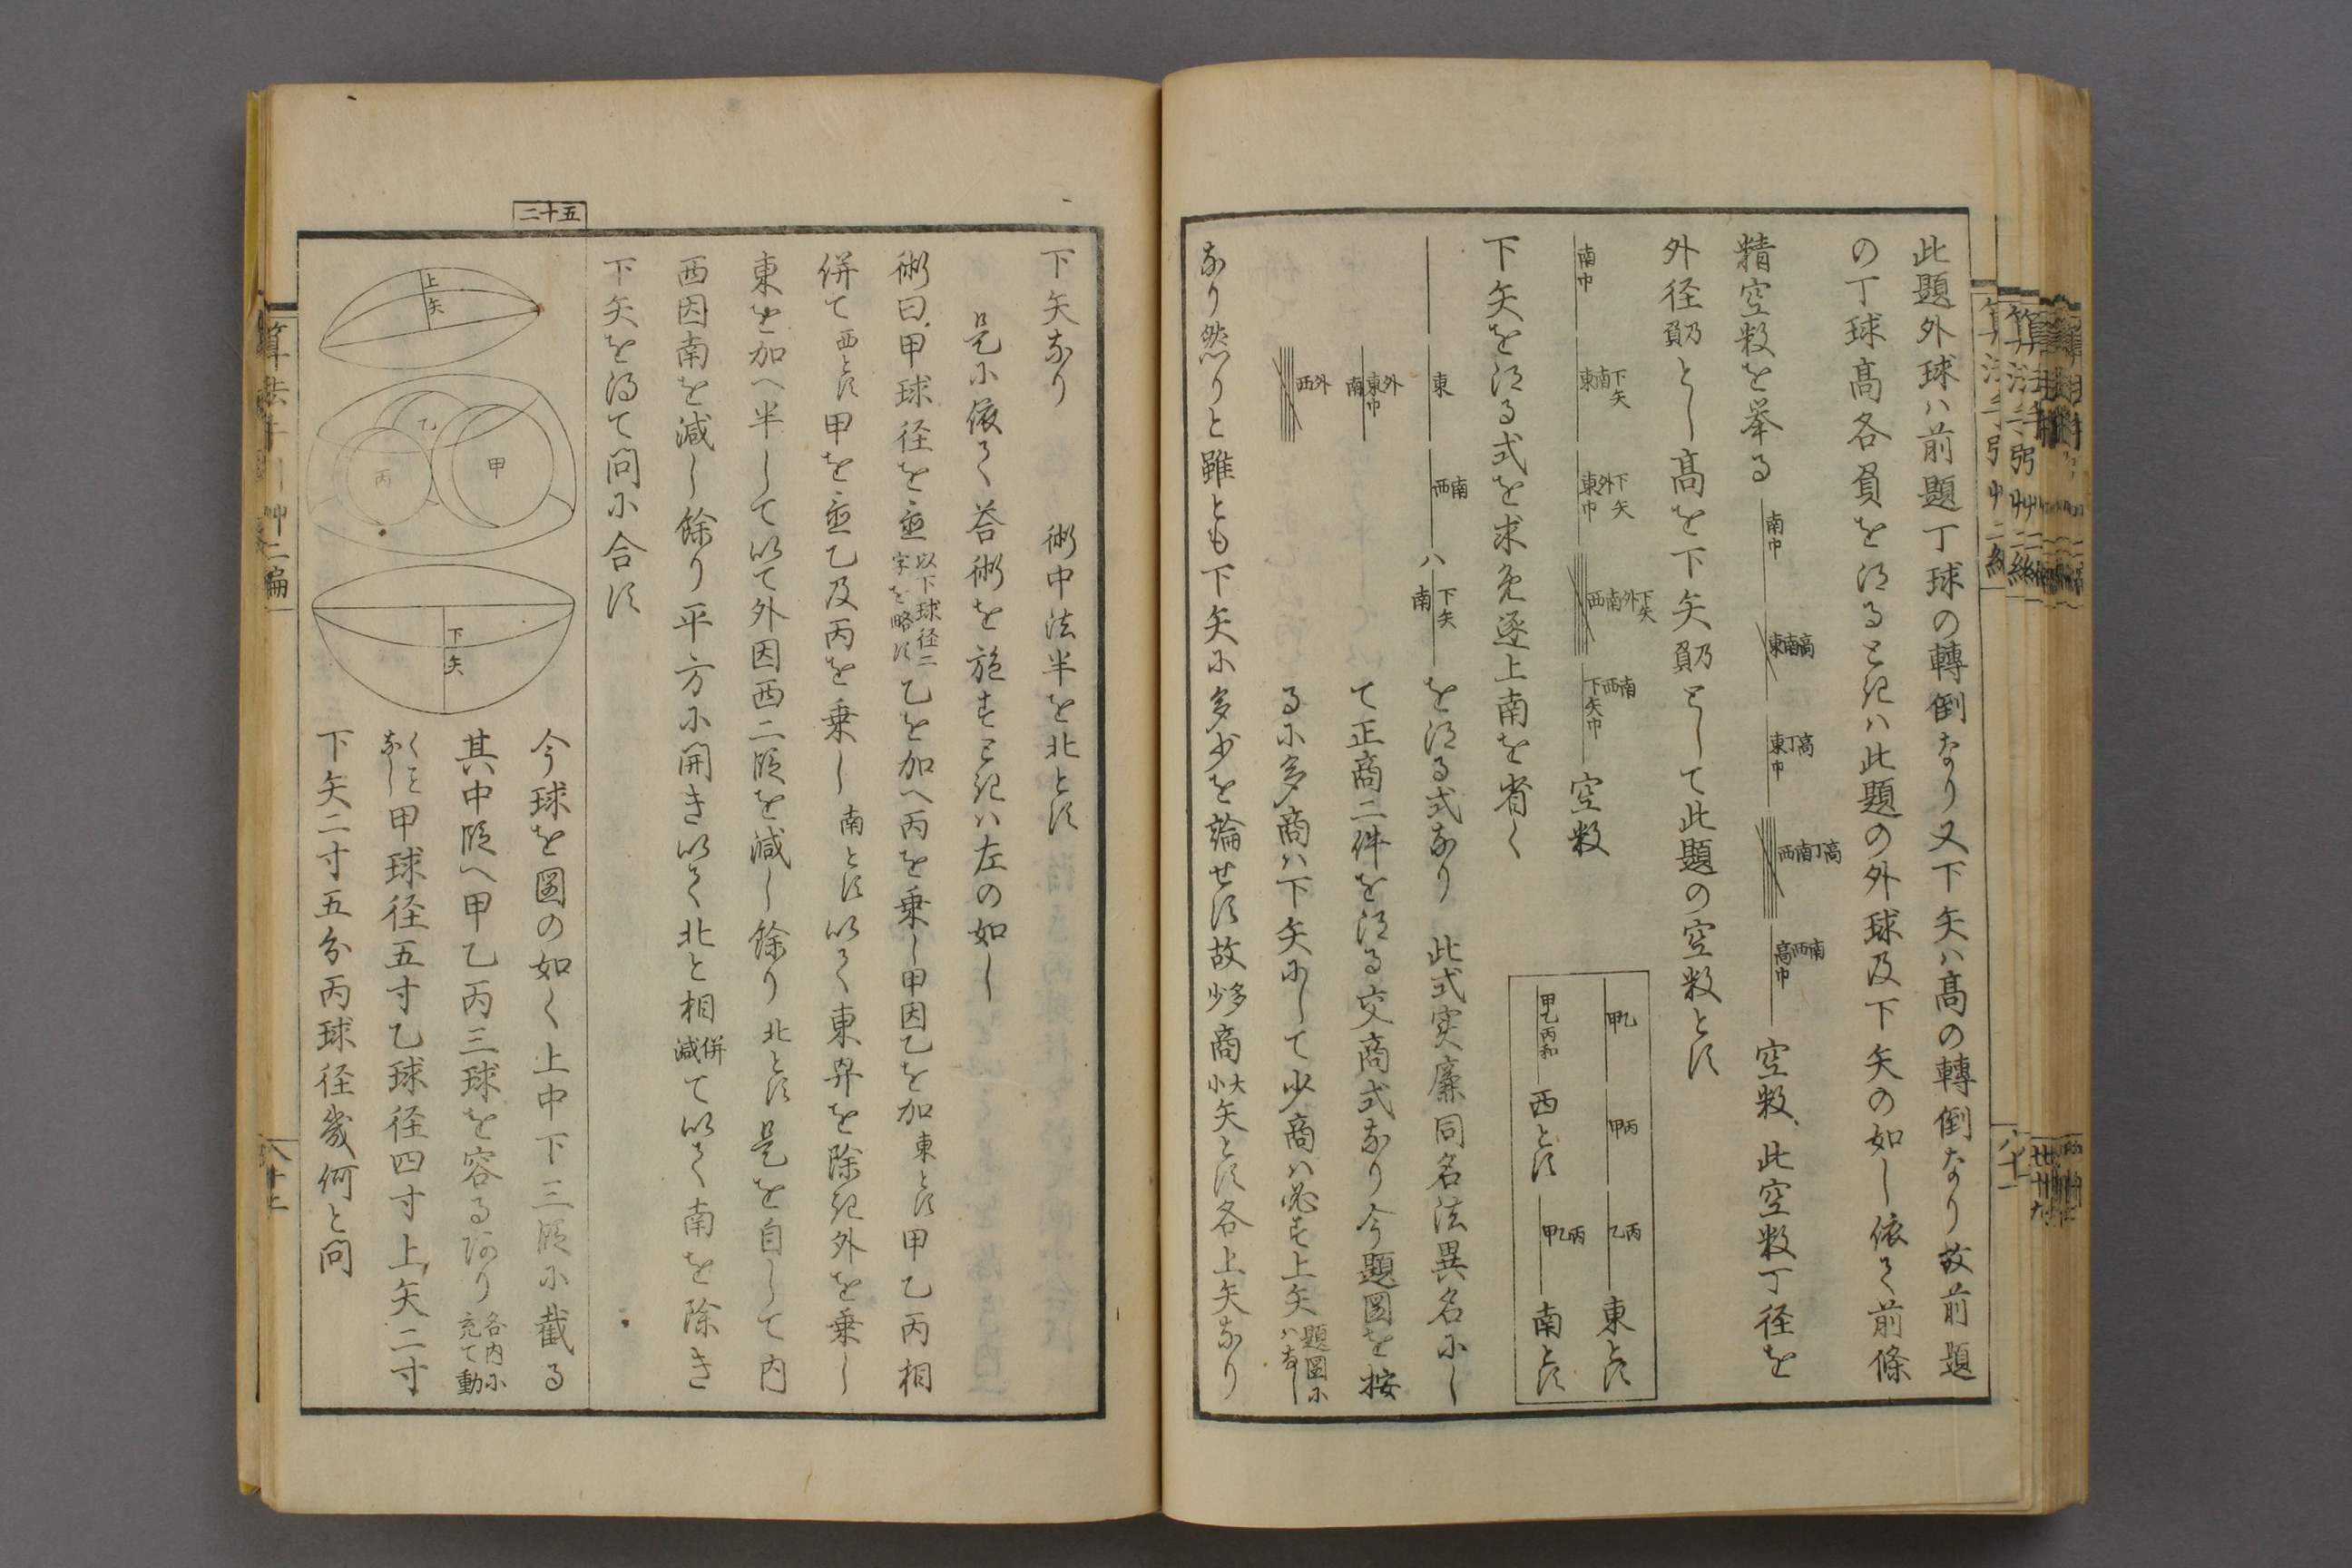 此題外球ハ前題丁球の轉倒なり又下矢ハ髙の轉倒なり故前題
の丁球髙各負を得るときハ此題の外球及下矢の如し依て前條
精空数を挙る
南巾
東南高
東丁高巾
西南丁高
高西南巾
空数此空数丁径を
外径負乃とし髙を下矢負乃として此題の空数とす
南巾
東南下矢
東外下矢巾
西南外下矢
下西南矢巾
空数
下矢を得る式を求免逐上南を省く
東
西南
ハ
南下矢
を得る式なり
此式実廉同名法異名にし
南東外巾
て正商二件を得る交商式なり今題図を按
西外
るに多商ハ下矢にして少商ハ必す上矢
題図に
ハなし
なり然りと雖とも下矢に多少を論せす故多少商大小矢とす各上矢なり
甲乙
甲丙
乙丙
東とす
甲乙丙和
西とす
甲乙丙
南とす
下矢なり
術中法半を北とす
是に依て答術を施すときハ左の如し
術曰甲球径を並
以下球径二
字を略す
乙を加へ丙を乗し甲因乙を加東とす甲乙丙相
併て西とす甲を並乙及丙を乗し南とす以て東冪を除き外を乗し
東を加へ半して以て外因西二段を減し餘り北とす是を自して内
西因南を減し餘り平方に開き以て北と相併減て以て南を除き
下矢を得て問に合す
二十五
上矢
甲
乙
丙
下矢
今球を図の如く上中下三段に截る
其中段へ甲乙丙三球を容るあり
各内に
充て動
くことなし
甲球径五寸乙球径四寸上矢二寸
下矢二寸五分丙球径幾何と問
八十一